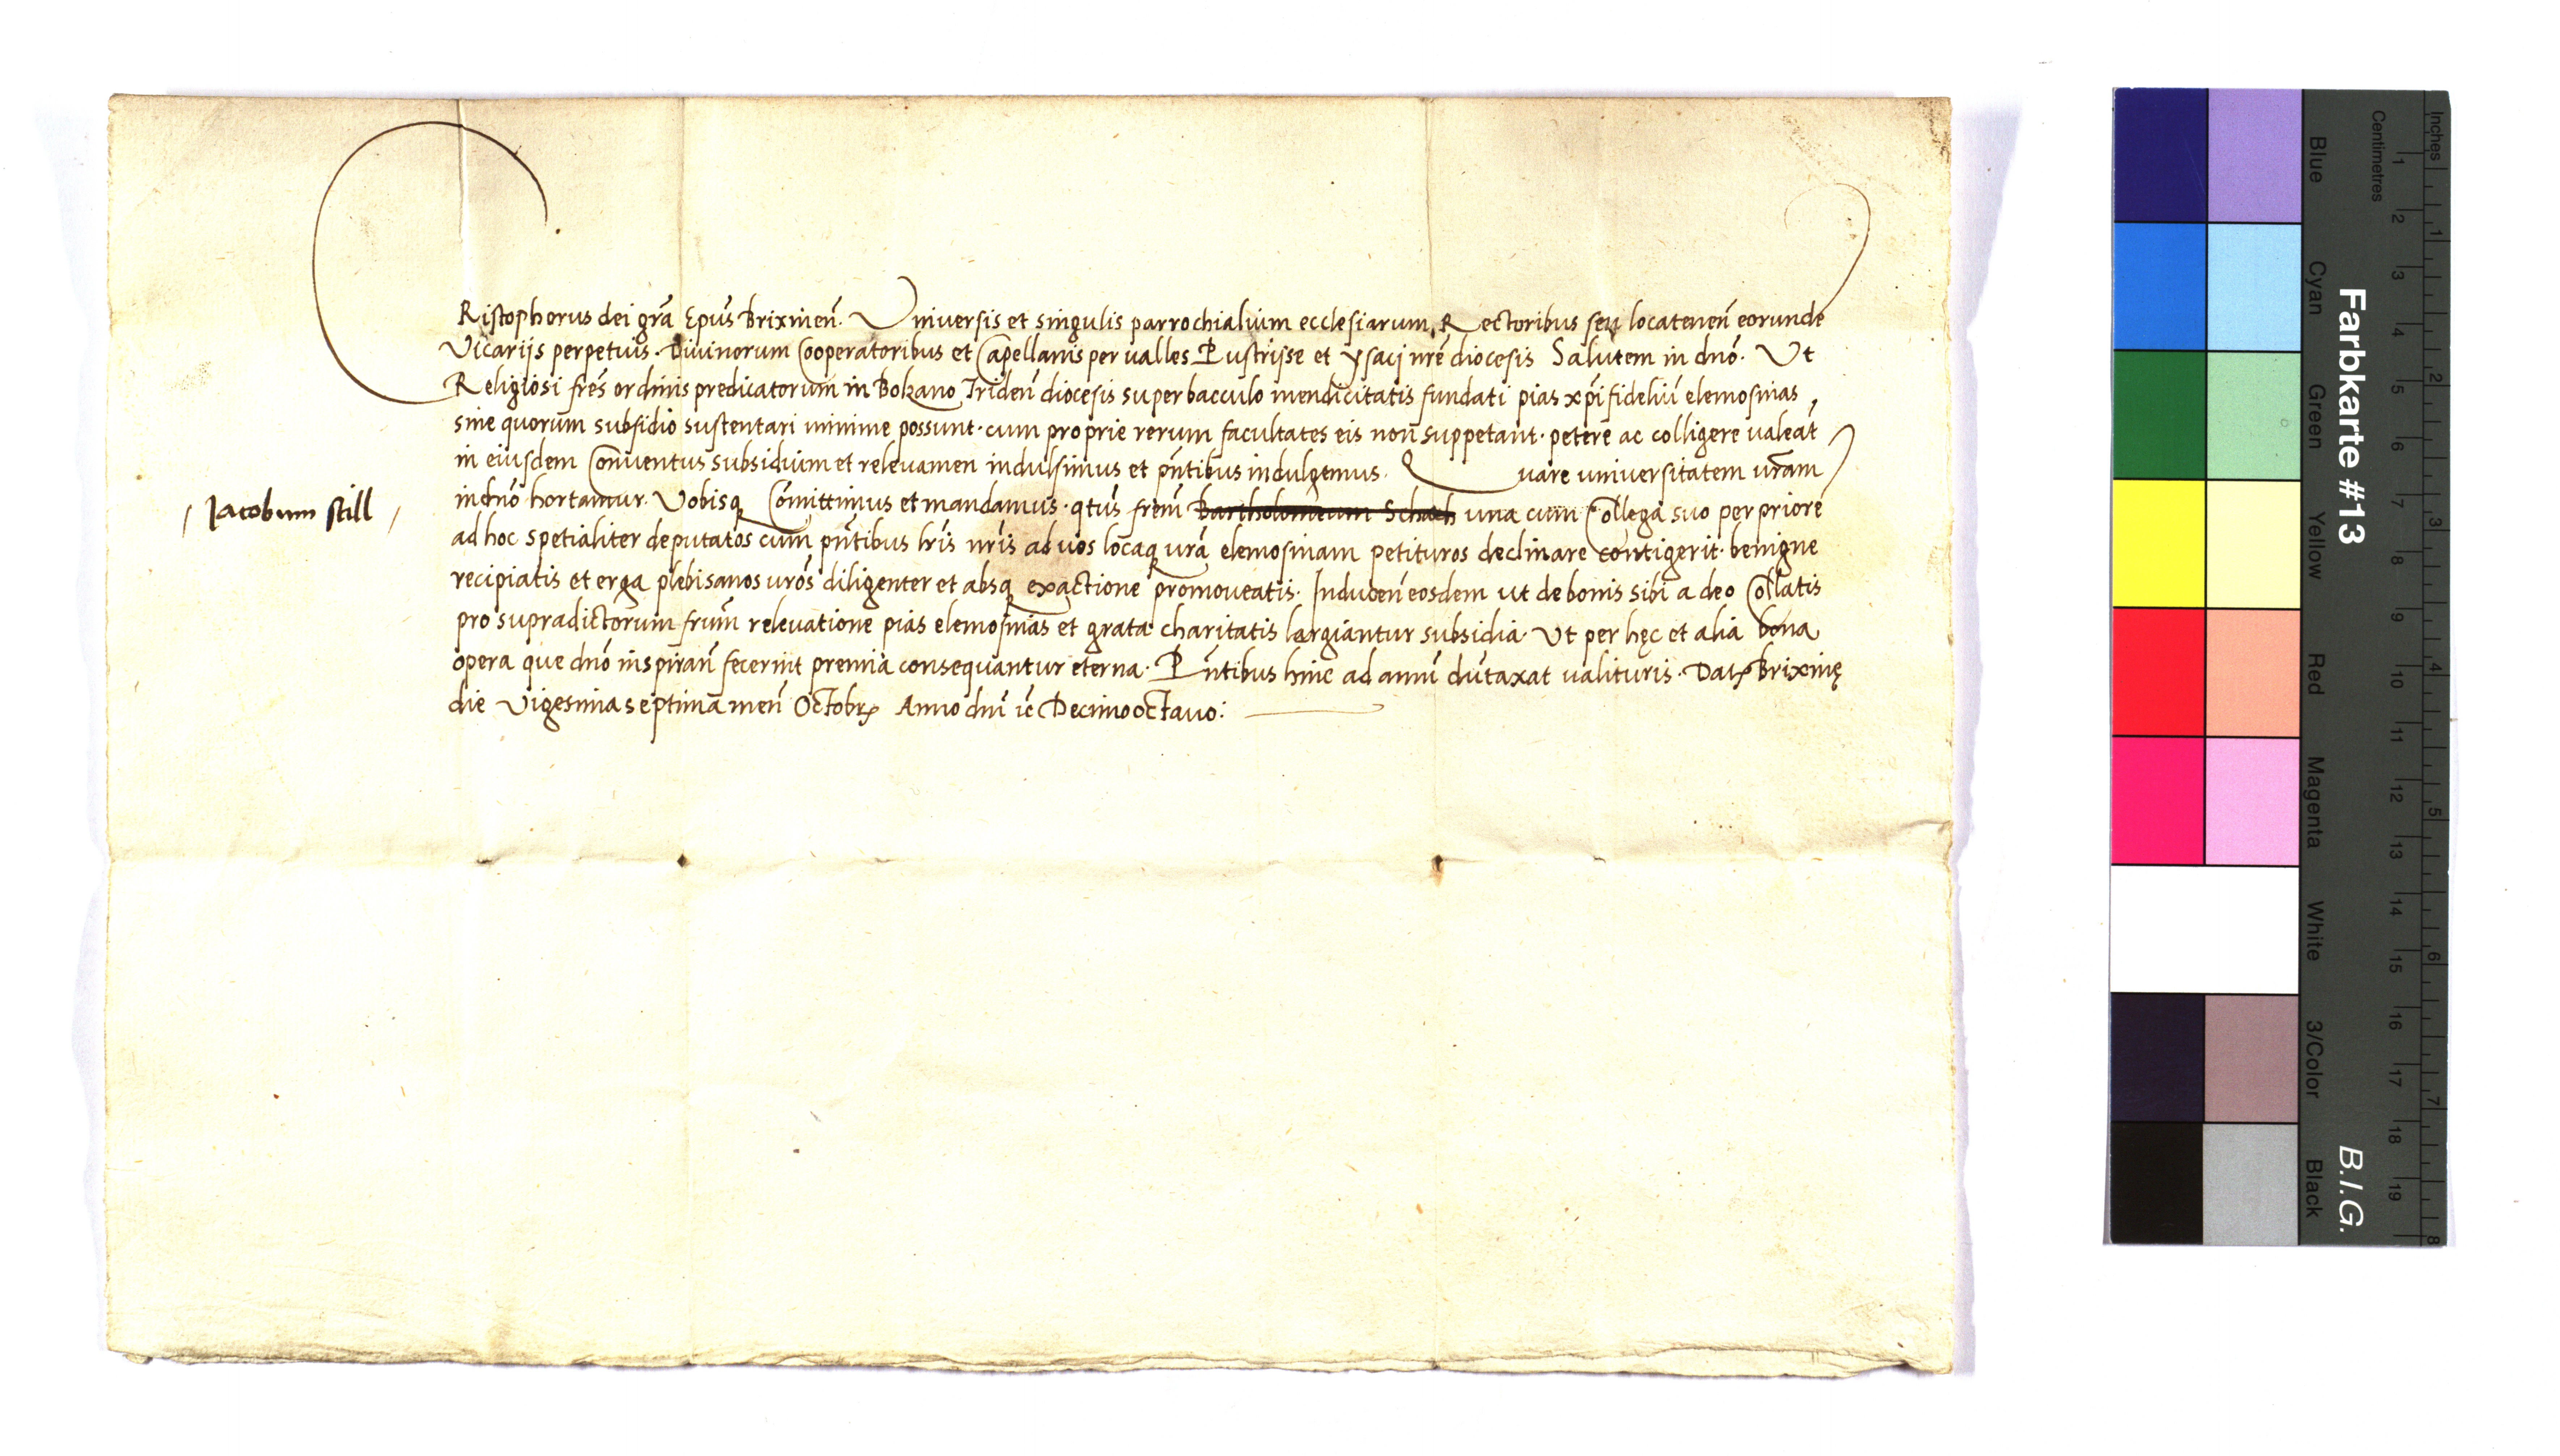 CRistophorus dei gr̃a Ep̃us Brixineñ. Universis et singulis parrochialium ecclesiarum, Rectoribus seu locateneñ eorunde
Vicarijs perpetuis. Diuinorum Cooperatoribus et Capellanis per ualles Pustrisse et ysaci nrẽ diocesis Salutem in dnõ. Ut
Religiosi frẽs ordinis predicatorum in Bolzano Trideñ diocesis super bacculo mendicitatis fundati pias xp̃i fideliũ elemosinas,
sine quorum subsidio sustentari minime possunt. cum proprie rerum facultates eis non suppetant. petere ac colligere ualeãt
in eiusdem Conuentus subsidium et releuamen indulsimus et pñtibus indulgemus. Quare universitatem ur̃am
in dnõ hortamur. Vobisq Com̃ittimus et mandamus. qtus̃ frem̃ Bartholomeum Schach una cum Collega suo per priorẽ
Jacobum still
ad hoc spetialiter deputatos cum pñtibus lr̃is nr̃is ad uos locaq ur̃a elemosinam petituros declinare contigerit. benigne
recipiatis et erga plebisanos urõs diligenter et absq exactione promoueatis. Induceñ eosdem ut de bonis sibi a deo Collatis
pro supradictorum frum̃ releuatione pias elemosinas et grata charitatis largiantur subsidia. Ut per hęc et alia bona
opera que dnõ inspirañ fecerint premia consequantur eterna. Pñtibus hinc ad annũ dũtaxat ualituris. Dat Brixinę
die Vigesima septima meñ Octobr Anno dnĩ ic̃ Decimooctauo:
Farbkarte #13
B.I.G.
Inches 1 2 3 4 5 6 7 8
Centimetres 1 2 3 4 5 6 7 8 9 10 11 12 13 14 15 16 17 18 19
Blue Cyan Green Yellow Red Magenta White 3/Color Black